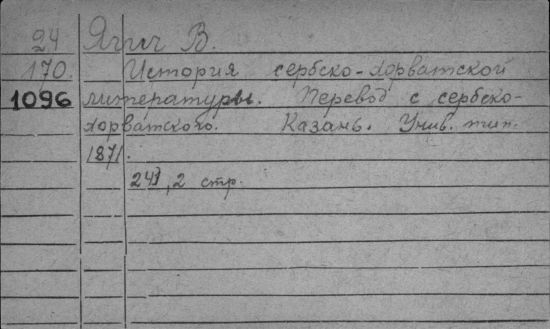 24 Ягич В.
170. История сербско-хорватской
1096 литературы. Перевод с сербско-
хорватского. Казань. Унив. тип.
1871.
243, 2 стр.